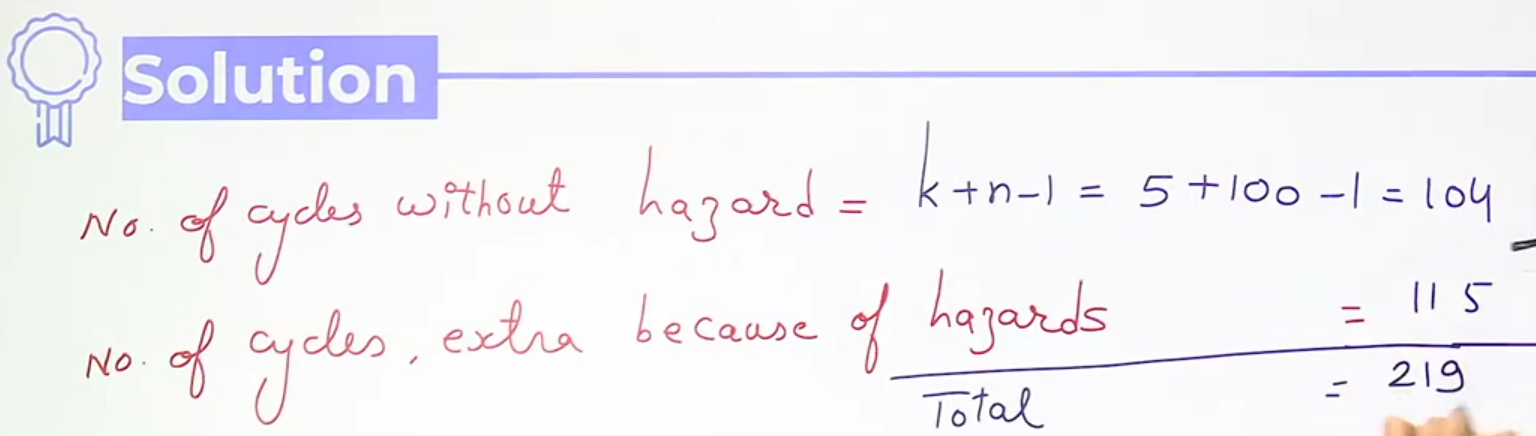 Solution
No. of cycles without hazard = k+n-1 = 5+100-1 = 104
No. of cycles, extra because of hazards = 115
Total = 219